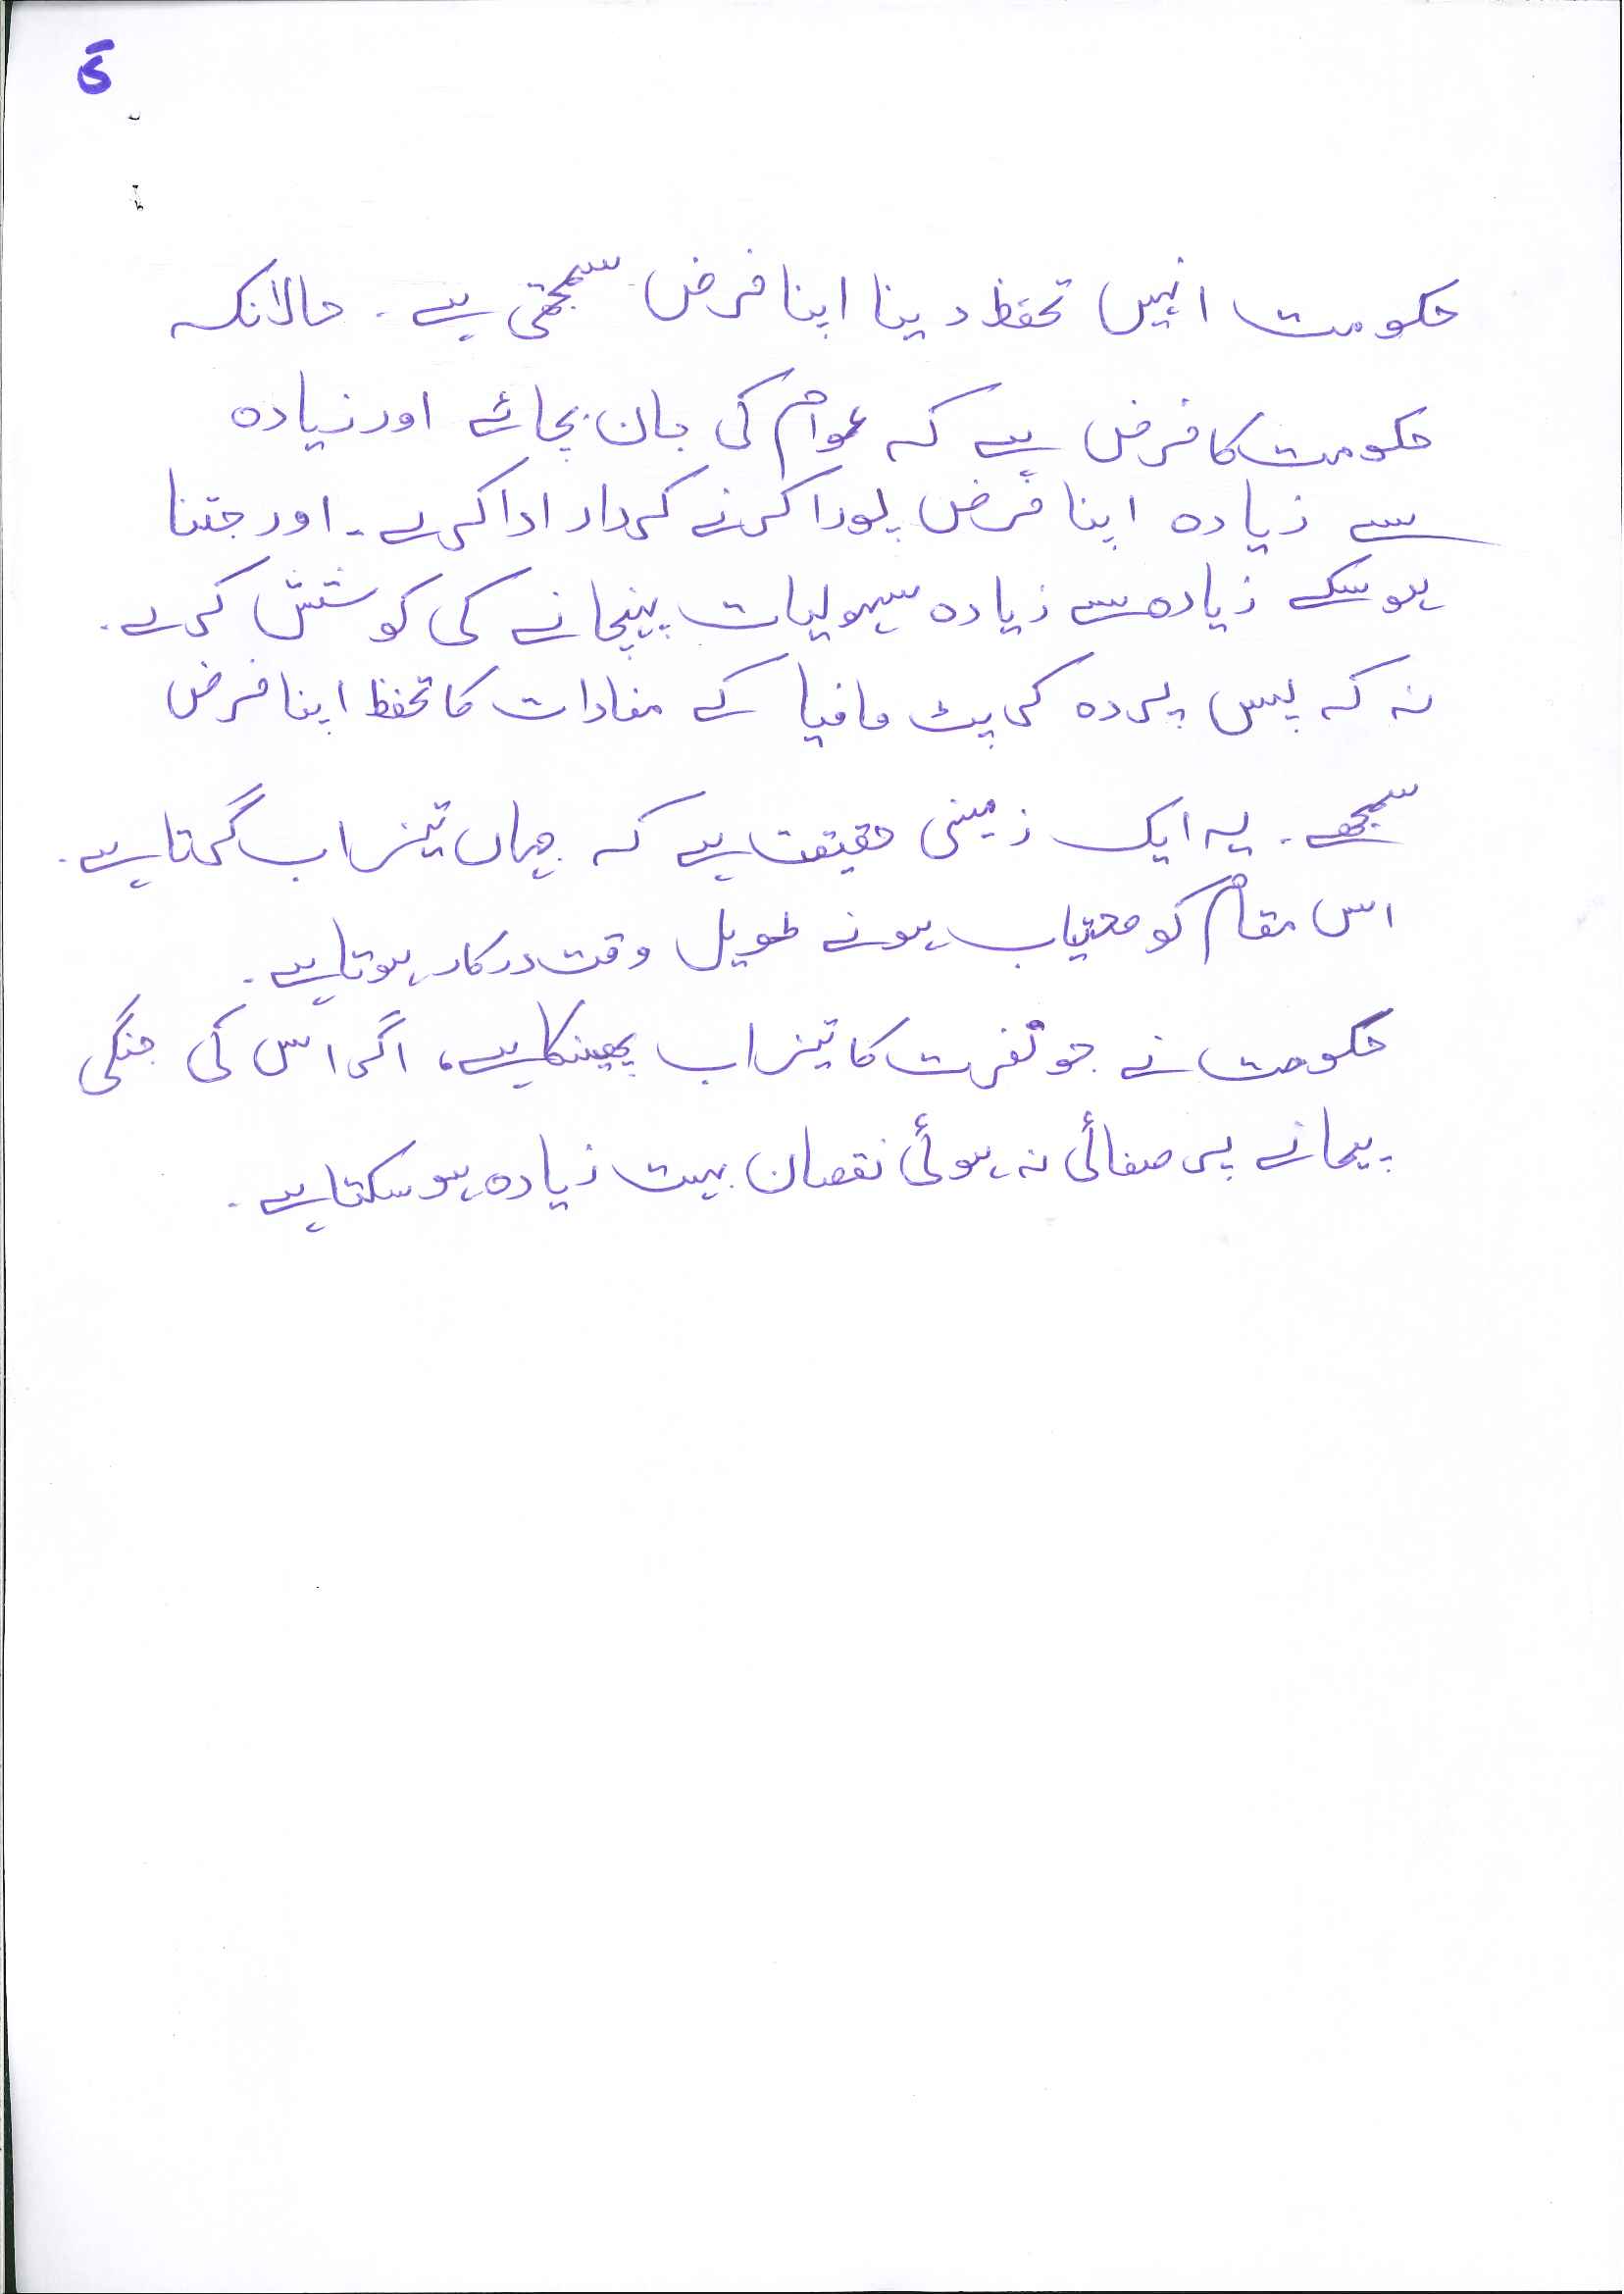 حکومت انہیں تحفظ دینا اپنا فرض سمجھتی ہے۔ حالانکہ
حکومت کا فرض ہے کہ عوام کی جان بچائے اور زیادہ
سے زیادہ اپنا فرض پورا کرنے کردار ادا کرے۔ اور جتنا
ہو سکے زیادہ سے زیادہ سہولیات پہنچانے کی کوشش کرے۔
نہ کہ پس پردہ کرپٹ مافیا کے مفادات کا تحفظ اپنا فرض
سمجھے۔ یہ ایک زمینی حقیقت ہے کہ جہاں تیزاب گرتا ہے۔
اس مقام کو صحتیاب ہونے طویل وقت درکار ہوتا ہے۔
حکومت نے جو نفرت کا تیزاب پھینکا ہے، اگر اس کی جنگی
پیمانے پر صفائی نہ ہوئی نقصان بہت زیادہ ہو سکتا ہے۔